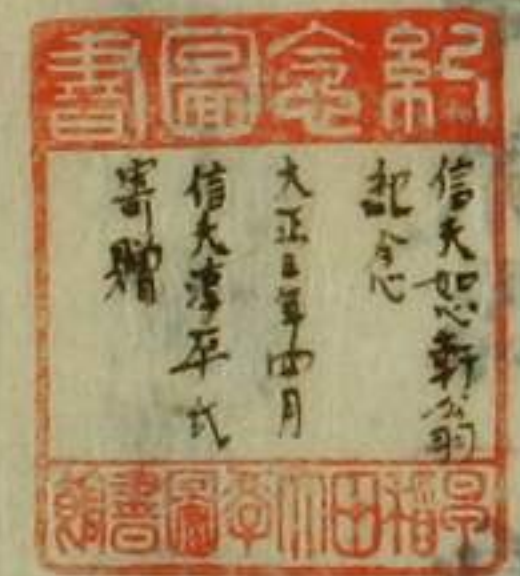 紀念圖書
信夫恕軒翁
記念
大正三年四月
信夫淳平氏
寄贈
早稻田大學圖書館